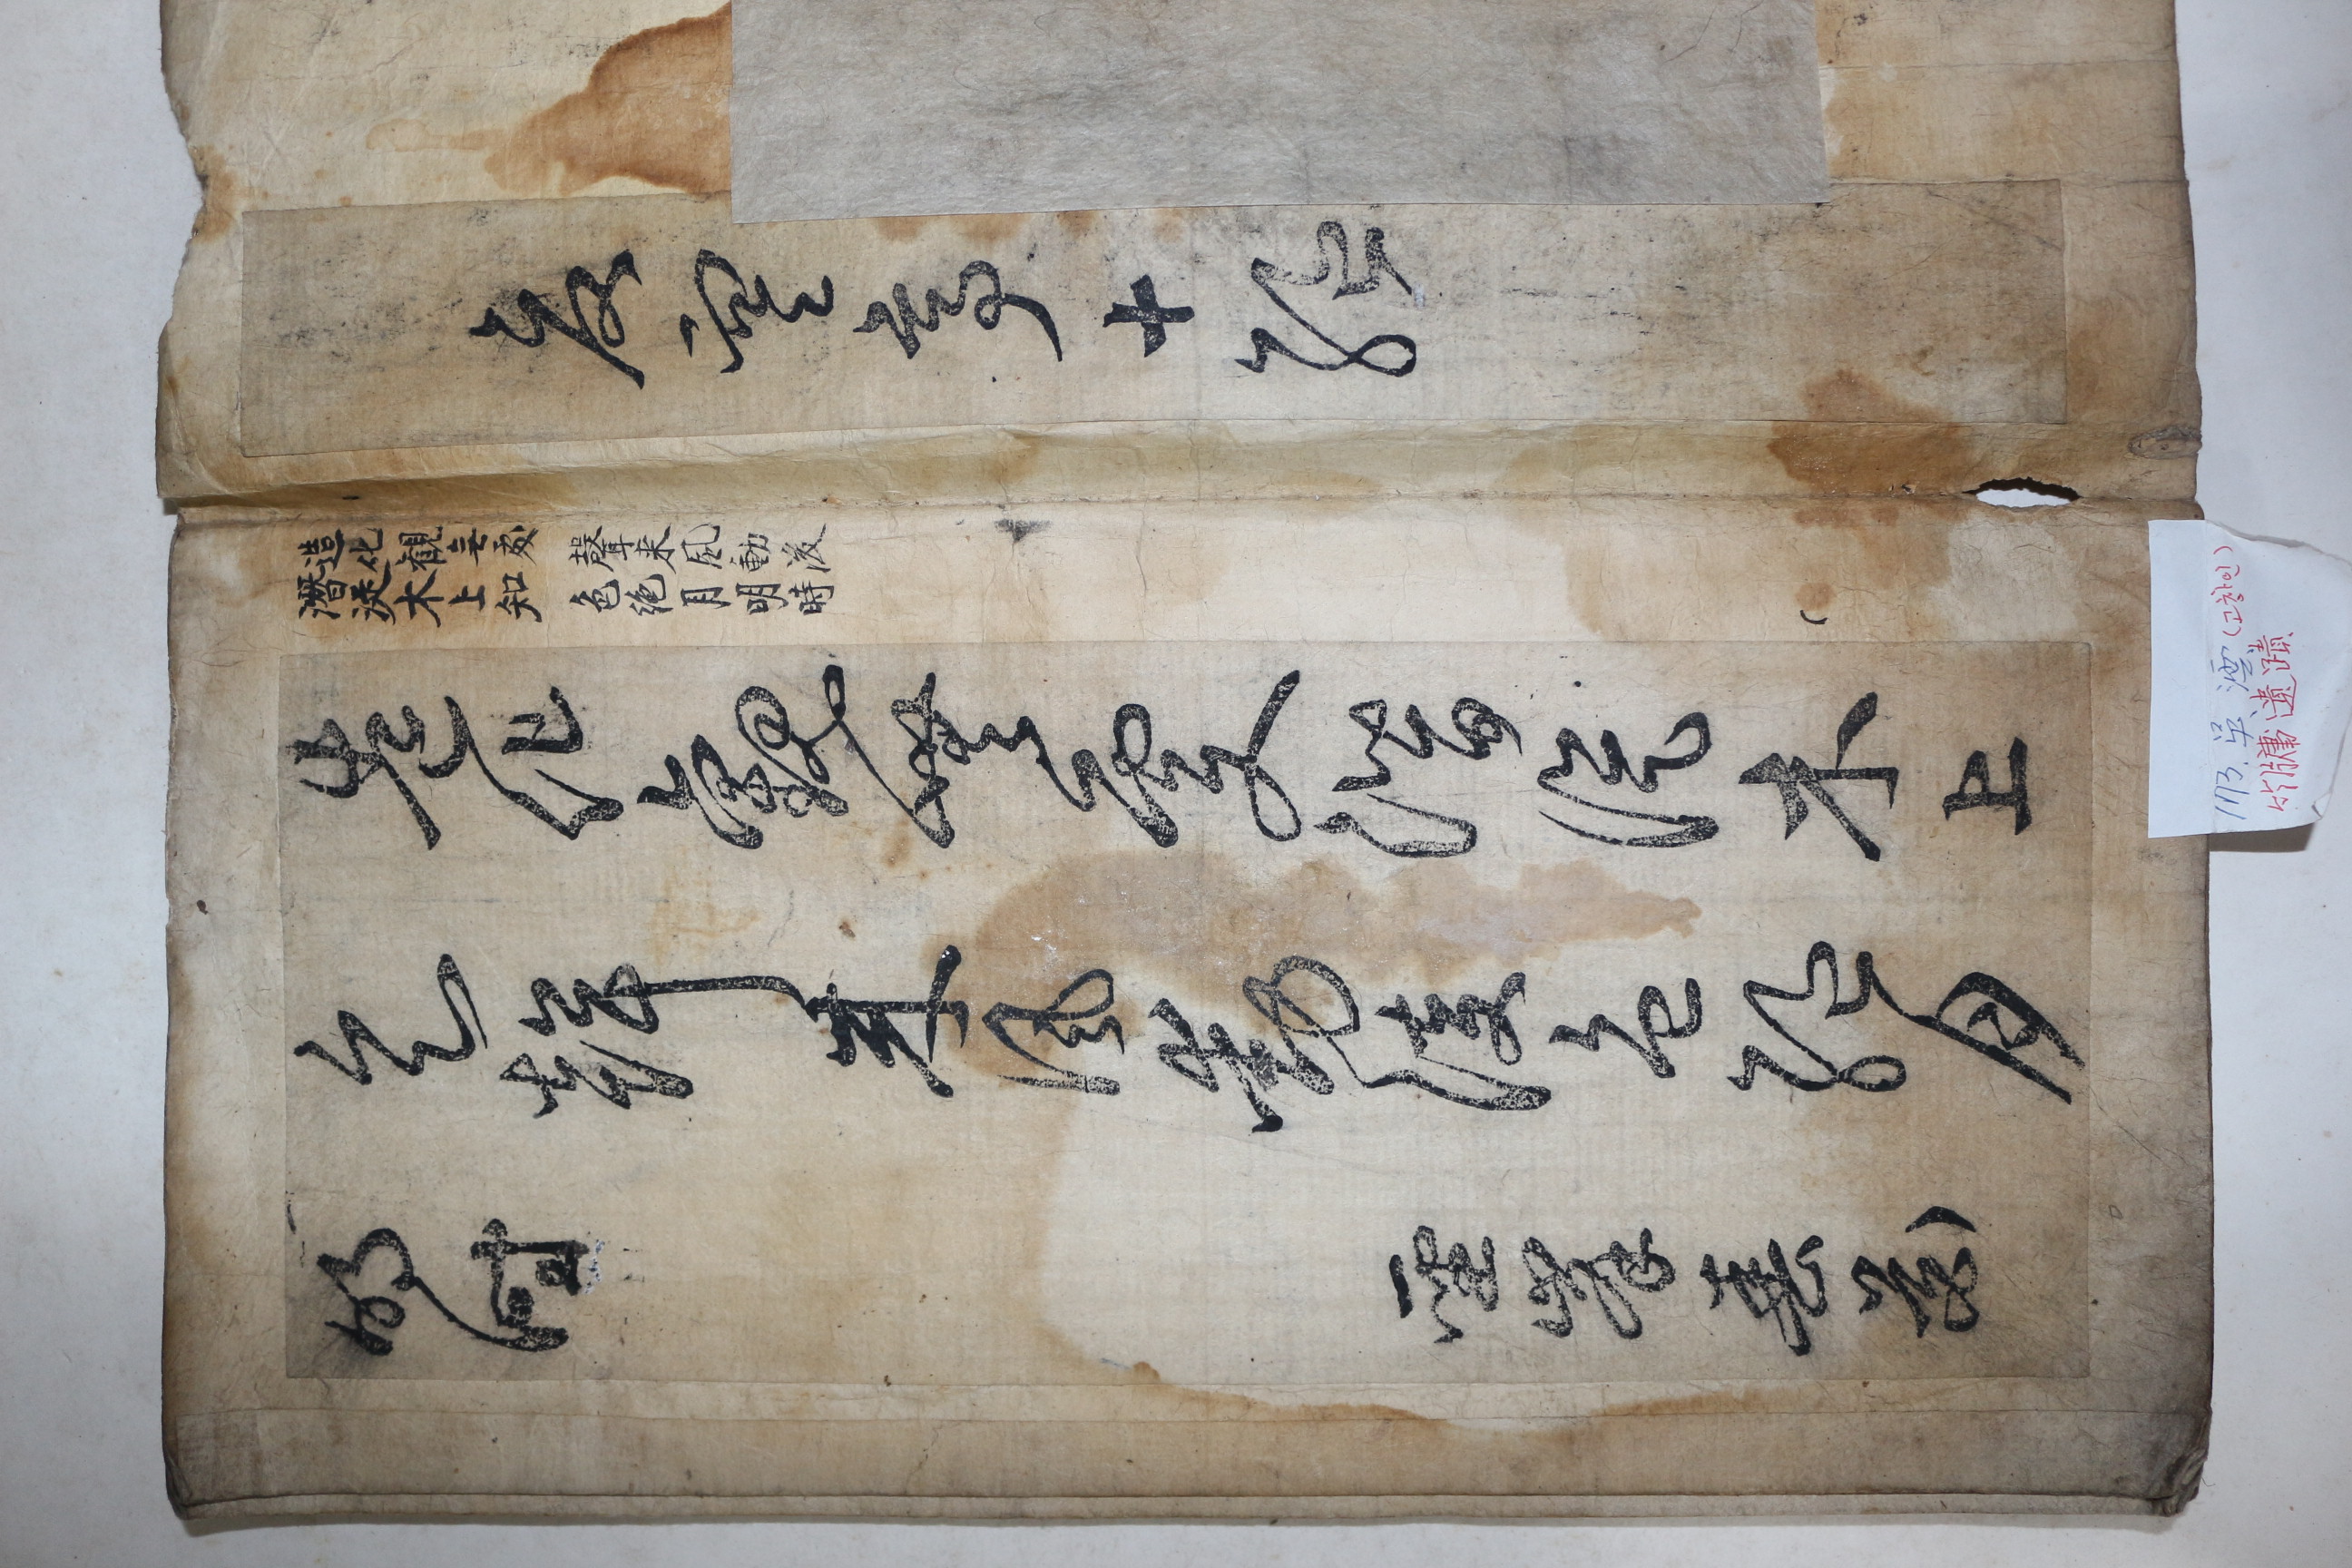 雲亭十絶
造化觀無處
潛從木上知
聲来風動後
色絶月明時
造化觀無處潛從木上
知聲来風動後色絶月
明時
聖峯春
173. 吳澐 (고창인)
竹牖遺蹟